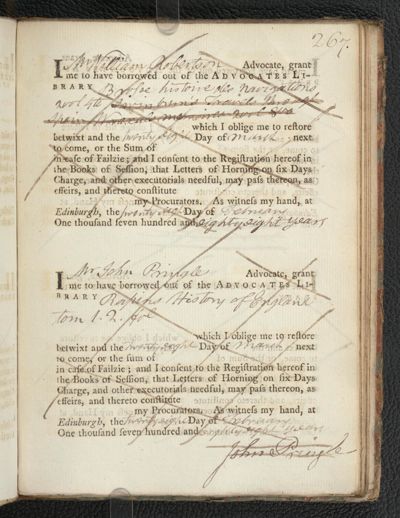 267.
I Mr William Robertson Advocate, grant
me to have borrowed out of the ADVOCATES LI-
BRARY Brosse histoire des navigations
vol 4to
which I oblige me to restore
betwixt and the twenty eight Day of March next
to come, or the Sum of
in case of Failzie; and I consent to the Registration hereof in
the Books of Session, that Letters of Horning on six Days
Charge, and other executorials needful, may pass thereon, as
effeirs, and thereto constitute
my Procurators. As witness my hand, at
Edinburgh, the twenty eight Day of February
One thousand seven hundred and eighty eight years
I Mr John Pringle Advocate, grant
me to have borrowed out of the ADVOCATES LI-
BRARY Rapins History of England
tom 1. 2. fol
which I oblige me to restore
betwixt and the twenty eight Day of March next
to come, or the sum of
in case of Failzie; and I consent to the Registration hereof in
the Books of Session, that Letters of Horning on six Days
Charge, and other executorials needful, may pass thereon, as
effeirs, and thereto constitute
my Procurators. As witness my hand, at
Edinburgh, the twenty eight Day of February
One thousand seven hundred and eighty eight years
John Pringle